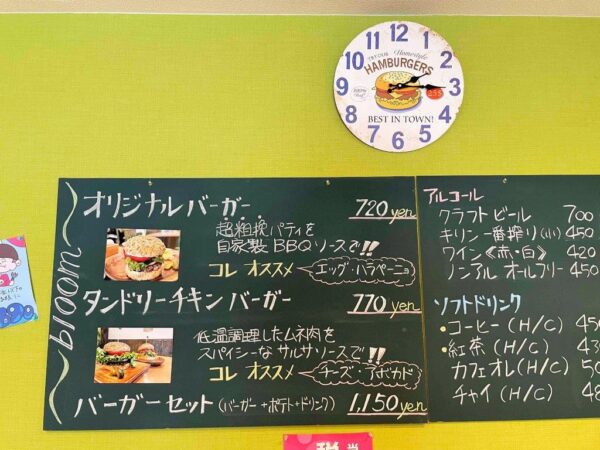 11 12 1
10 2
9 3
8 4
7 6 5
Homestyle
HAMBURGERS
BEST IN TOWN!
bloom
オリジナルバーガー 720yen
超粗挽パティを
自家製BBQソースで!!
コレオススメ エッグ・ハラペーニョ
タンドリーチキンバーガー 770yen
低温調理したムネ肉を
スパイシーなサルサソースで!!
コレオススメ チーズ・アボカド
バーガーセット(バーガー+ポテト+ドリンク) 1,150yen
アルコール
クラフトビール 700
キリン一番搾り(小) 450
ワイン《赤・白》 420
ノンアルオールフリー 450
ソフトドリンク
・コーヒー(H/C)
・紅茶(H/C)
カフェオレ(H/C)
チャイ(H/C)